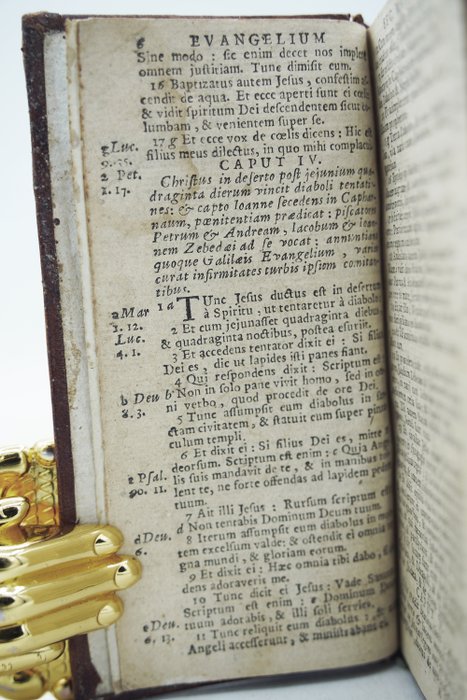 6 EVANGELIUM
Sine modo : sic enim decet nos implere
omnem justitiam. Tunc dimisit eum.
16 Baptizatus autem Jesus, confestim as-
cendit de aqua. Et ecce aperti sunt ei cœli
& vidit spiritum Dei descendentem sicut co-
lumbam, & venientem super se.
g Luc. 17 g Et ecce vox de cœlis dicens : Hic est
9. 35. filius meus dilectus, in quo mihi complacui
2 Pet. CAPUT IV.
1. 17. Christus in deserto post jejunium qua-
draginta dierum vincit diaboli tentatio-
nes: & capto Ioanne secedens in Caphar-
naum, pœnitentiam prædicat : piscatores
Petrum & Andream, Iacobum & Ioan-
nem Zebedæi ad se vocat : annuntians
quoque Galilæis Evangelium, varias
curat infirmitates turbis ipsum comitan-
tibus.
a Mar 1 a TUnc Jesus ductus est in desertum
1. 12. à Spiritu : ut tentaretur à diabolo
Luc. 2 Et cum jejunasset quadraginta diebus
4. 1. & quadraginta noctibus, postea esuriit.
3 Et accedens tentator dixit ei : Si filius
Dei es, dic ut lapides isti panes fiant.
4 Qui respondens dixit : Scriptum est
b Deu b Non in solo pane vivit homo, sed in om-
8. 3. ni verbo, quod procedit de ore Dei.
5 Tunc assumpsit eum diabolus in san-
ctam civitatem, & statuit eum super pinna-
culum templi.
6 Et dixit ei : Si filius Dei es, mitte te
deorsum. Scriptum est enim : c Quia Ange-
c Psal. lis suis mandavit de te, & in manibus tol-
90. 11. lent te, ne forte offendas ad lapidem pedem
tuum.
7 Ait illi Jesus : Rursum scriptum est
d Deu. d Non tentabis Dominum Deum tuum.
6. 8 Iterum assumpsit eum diabolus in mon-
tem excelsum valde: & ostendit ei omnia re-
gna mundi, & gloriam eorum.
9 Et dixit ei : Hæc omnia tibi dabo, si ca-
dens adoraveris me.
10 Tunc dicit ei Jesus : Vade Satana
Scriptum est enim : e Dominum Deum
e Deu. tuum adorabis, & illi soli servies.
6. 13. 11 Tunc reliquit eum diabolus : & ecce
Angeli accesserunt, & ministrabant ei.